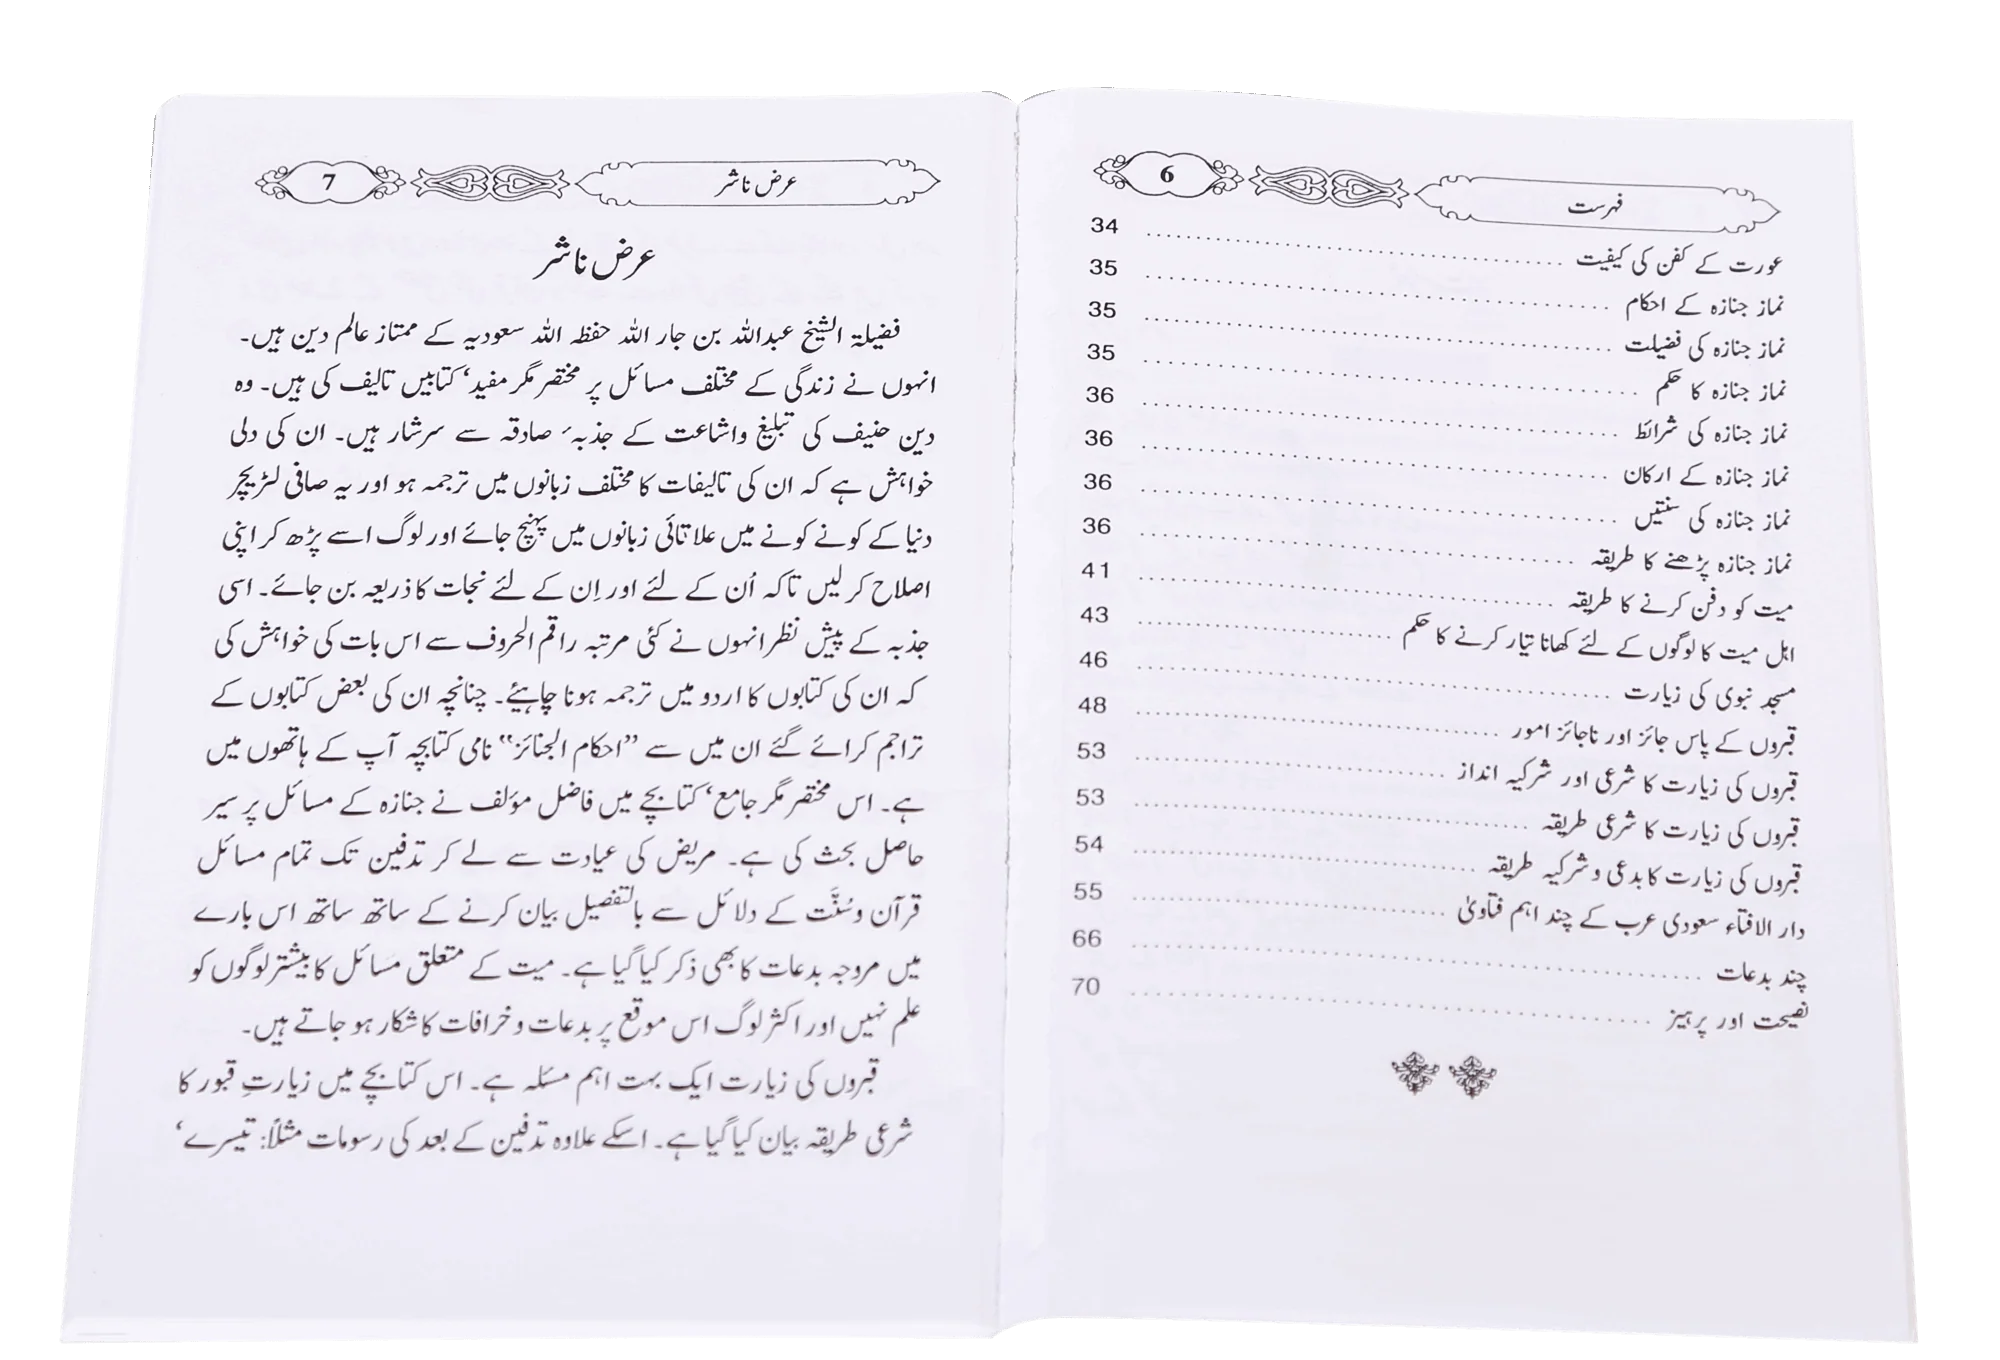 6
فہرست
عورت کے کفن کی کیفیت ........ 34
نماز جنازہ کے احکام ........ 35
نماز جنازہ کی فضیلت ........ 35
نماز جنازہ کا حکم ........ 35
نماز جنازہ کی شرائط ........ 36
نماز جنازہ کے ارکان ........ 36
نماز جنازہ کی سنتیں ........ 36
نماز جنازہ پڑھنے کا طریقہ ........ 36
میت کو دفن کرنے کا طریقہ ........ 41
اہل میت کا لوگوں کے لئے کھانا تیار کرنے کا حکم ........ 43
مسجد نبوی کی زیارت ........ 46
قبروں کے پاس جائز اور ناجائز امور ........ 48
قبروں کی زیارت کا شرعی اور شرکیہ انداز ........ 53
قبروں کی زیارت کا شرعی طریقہ ........ 53
قبروں کی زیارت کا بدعی و شرکیہ طریقہ ........ 54
دار الافتاء سعودی عرب کے چند اہم فتاویٰ ........ 55
چند بدعات ........ 66
نصیحت اور پرہیز ........ 70
7
عرض ناشر
عرض ناشر
فضیلۃ الشیخ عبداللہ بن جار اللہ حفظہ اللہ سعودیہ کے ممتاز عالم دین ہیں۔
انہوں نے زندگی کے مختلف مسائل پر مختصر مگر مفید، کتابیں تالیف کی ہیں۔ وہ
دین حنیف کی تبلیغ واشاعت کے جذبہء صادقہ سے سرشار ہیں۔ ان کی دلی
خواہش ہے کہ ان کی تالیفات کا مختلف زبانوں میں ترجمہ ہو اور یہ صافی لٹریچر
دنیا کے کونے کونے میں علاقائی زبانوں میں پہنچ جائے اور لوگ اسے پڑھ کر اپنی
اصلاح کر لیں تاکہ اُن کے لئے اور اِن کے لئے نجات کا ذریعہ بن جائے۔ اسی
جذبہ کے پیش نظر انہوں نے کئی مرتبہ راقم الحروف سے اس بات کی خواہش کی
کہ ان کی کتابوں کا اردو میں ترجمہ ہونا چاہیئے۔ چنانچہ ان کی بعض کتابوں کے
تراجم کرائے گئے ان میں سے "احکام الجنائز" نامی کتابچہ آپ کے ہاتھوں میں
ہے۔ اس مختصر مگر جامع، کتابچے میں فاضل مؤلف نے جنازہ کے مسائل پر سیر
حاصل بحث کی ہے۔ مریض کی عیادت سے لے کر تدفین تک تمام مسائل
قرآن و سُنَّت کے دلائل سے بالتفصیل بیان کرنے کے ساتھ ساتھ اس بارے
میں مروجہ بدعات کا بھی ذکر کیا گیا ہے۔ میت کے متعلق مسائل کا بیشتر لوگوں کو
علم نہیں اور اکثر لوگ اس موقع پر بدعات و خرافات کا شکار ہو جاتے ہیں۔
قبروں کی زیارت ایک بہت اہم مسئلہ ہے۔ اس کتابچے میں زیارتِ قبور کا
شرعی طریقہ بیان کیا گیا ہے۔ اسکے علاوہ تدفین کے بعد کی رسومات مثلاً: تیسرے،